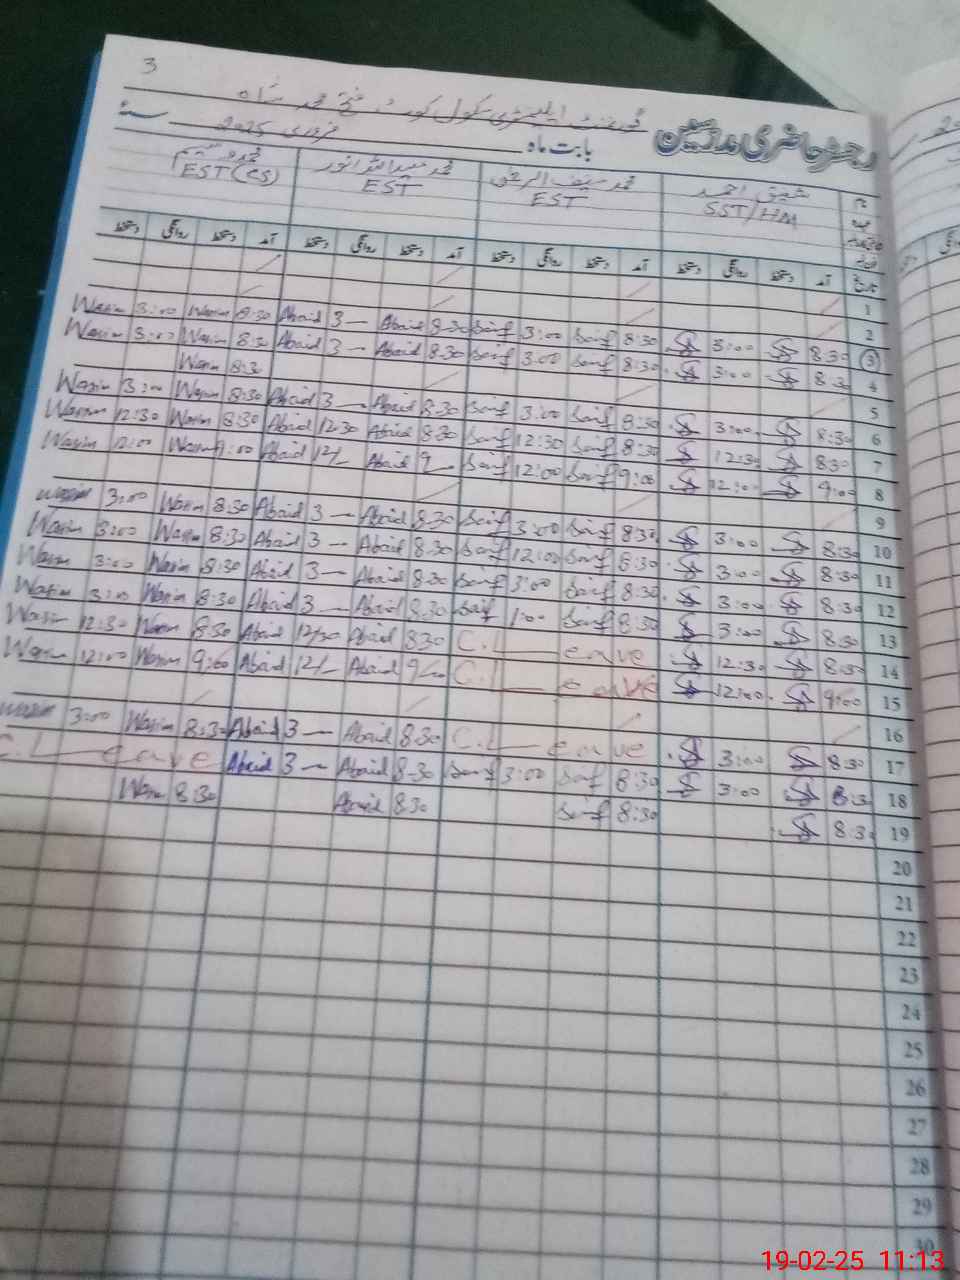 3
گورنمنٹ ایلیمنٹری سکول کوٹ فتح محمد شاہ
رجسٹر حاضری مدرسین
بابت ماہ فروری 2025 سنہ
شفیق احمد محمد سیف الرحمٰن محمد عبیداللہ انور محمد وسیم
SST/HM EST EST EST (CS)
تاریخ آمد دستخط روانگی دستخط آمد دستخط روانگی دستخط آمد دستخط روانگی دستخط آمد دستخط روانگی دستخط
1
2
Wasim 3:00 Wasim 8:30 Abaid 3— Abaid 8:30 Saif 3:00 Saif 8:30 3:00 8:30 3
Wasim 3:00 Wasim 8:30 Abaid 3— Abaid 8:30 Saif 3:00 Saif 8:30 3:00 8:30 4
Wasim 8:30 5
Wasim 3:00 Wasim 8:30 Abaid 3— Abaid 8:30 Saif 3:00 Saif 8:30 3:00 8:30 6
Wasim 12:30 Wasim 8:30 Abaid 12:30 Abaid 8:30 Saif 12:30 Saif 8:30 12:30 8:30 7
Wasim 12:00 Wasim 9:00 Abaid 12/— Abaid 9— Saif 12:00 Saif 9:00 12:00 9:00 8
9
Wasim 3:00 Wasim 8:30 Abaid 3— Abaid 8:30 Saif 3:00 Saif 8:30 3:00 8:30 10
Wasim 3:00 Wasim 8:30 Abaid 3— Abaid 8:30 Saif 12:00 Saif 8:30 3:00 8:30 11
Wasim 3:00 Wasim 8:30 Abaid 3— Abaid 8:30 Saif 3:00 Saif 8:30 3:00 8:30 12
Wasim 3:00 Wasim 8:30 Abaid 3— Abaid 8:30 Saif 1:00 Saif 8:30 3:00 8:30 13
Wasim 12:30 Wasim 8:30 Abaid 12/30 Abaid 8:30 C.Leave 12:30 8:30 14
Wasim 12:00 Wasim 9:00 Abaid 12/— Abaid 9— C.Leave 12:00 9:00 15
16
Wasim 3:00 Wasim 8:30 Abaid 3— Abaid 8:30 C.Leave 3:00 8:30 17
C.Leave Abaid 3— Abaid 8:30 Saif 3:00 Saif 8:30 3:00 8:30 18
Wasim 8:30 Abaid 8:30 Saif 8:30 8:30 19
20
21
22
23
24
25
26
27
28
29
30
19-02-25 11:13